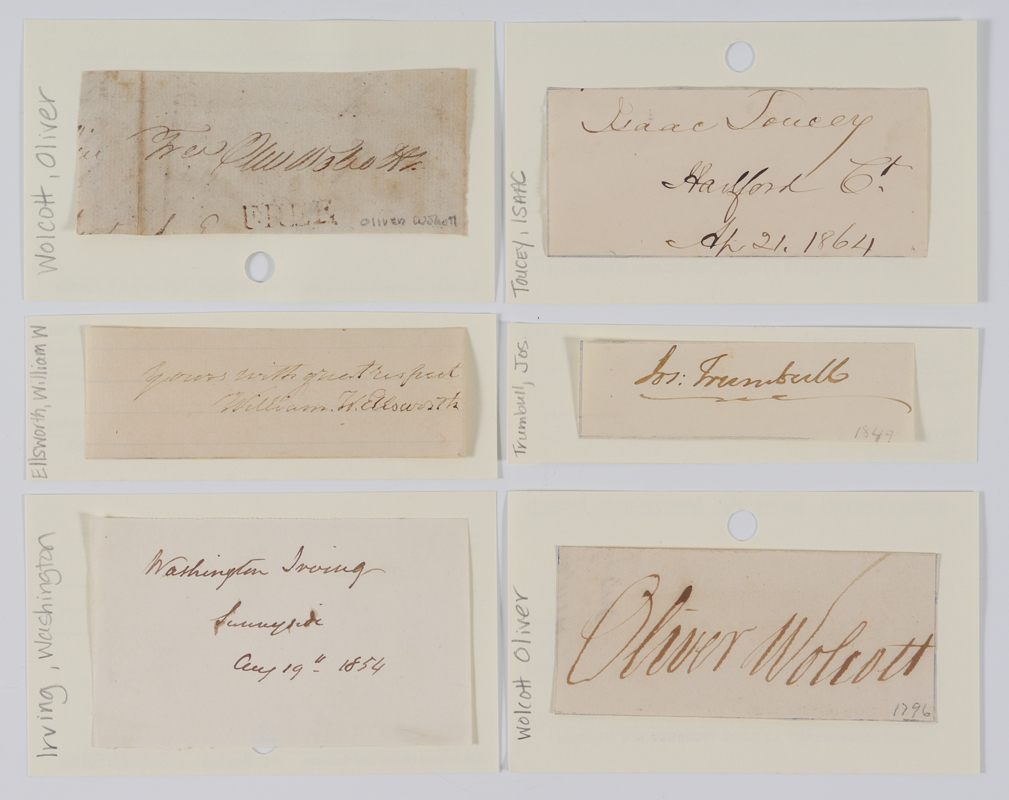 Wolcott, Oliver
Free Oliv Wolcott
FREE
Oliver Wolcott
Toucey, ISAAC
Isaac Toucey
Hartford Ct.
Ap 21. 1864
Ellsworth, William W
Yours with great respect
William W. Ellsworth
Trumbull, Jos.
Jos: Trumbull
1849
Irving, Washington
Washington Irving
Sunnyside
Aug 19" 1854
Wolcott Oliver
Oliver Wolcott
1796